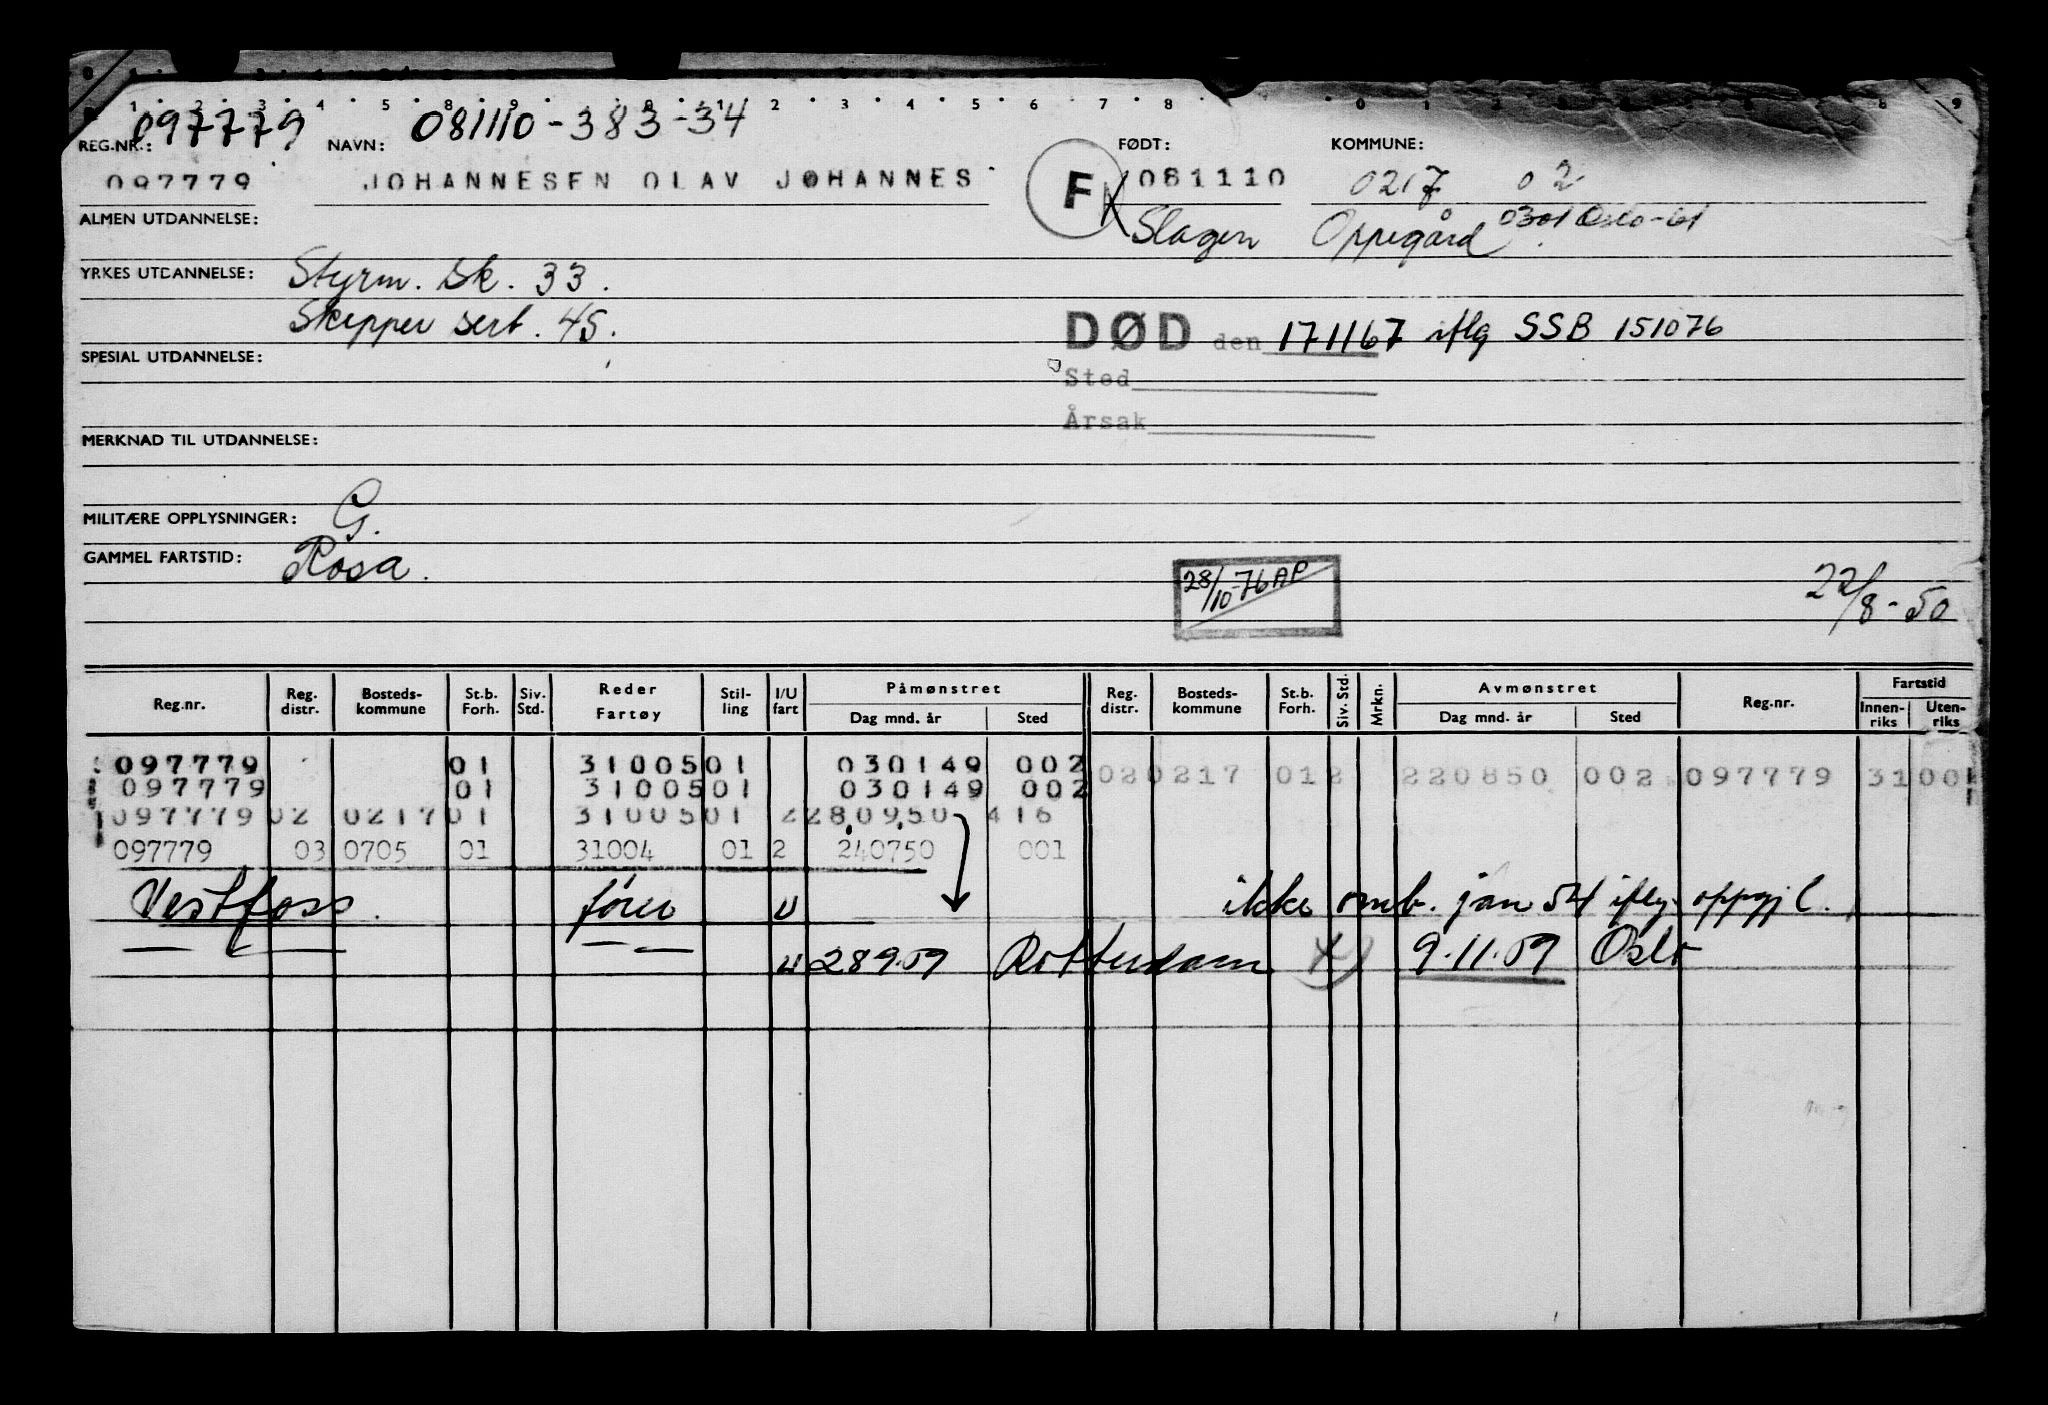 1 2 3 4 5 8 9 0 1 2 3 4 5 6 7 8 0 1 2 3 8 9
097779 081110-383-34
REG.NR.: NAVN: FØDT: KOMMUNE:
097779 JOHANNESEN OLAV JOHANNES F 081110 0217 02
ALMEN UTDANNELSE: Slagen Oppegård 0301 Oslo-61
YRKES UTDANNELSE: Styrm. sk. 33.
Skipper sert. 45.
DØD den 171167 iflg SSB 151076
SPESIAL UTDANNELSE:
Sted
Årsak
MERKNAD TIL UTDANNELSE:
MILITÆRE OPPLYSNINGER: G.
GAMMEL FARTSTID: Rosa.
28/10-76 AP 22/8-50
Reg.nr. Reg. distr. Bosteds-kommune St.b. Forh. Siv. Std. Reder Fartøy Stil-ling I/U fart Påmønstret Dag mnd. år Sted Reg. distr. Bosteds-kommune St.b. Forh. Siv. Std. Mrkn. Avmønstret Dag mnd. år Sted Reg.nr. Fartstid Innen-riks Uten-riks
097779 01 31005 01 030149 002
02 0217 01 2 220850 002 097779 31 00
097779 01 31005 01 030149 002
097779 02 0217 01 31005 01 2 280950 416
097779 03 0705 01 31004 01 2 240750 001
Vestfoss. fører U ikke omb. jan 54 iflg oppgj.
U 28 9.59 Rotterdam 9.11.59 Oslo